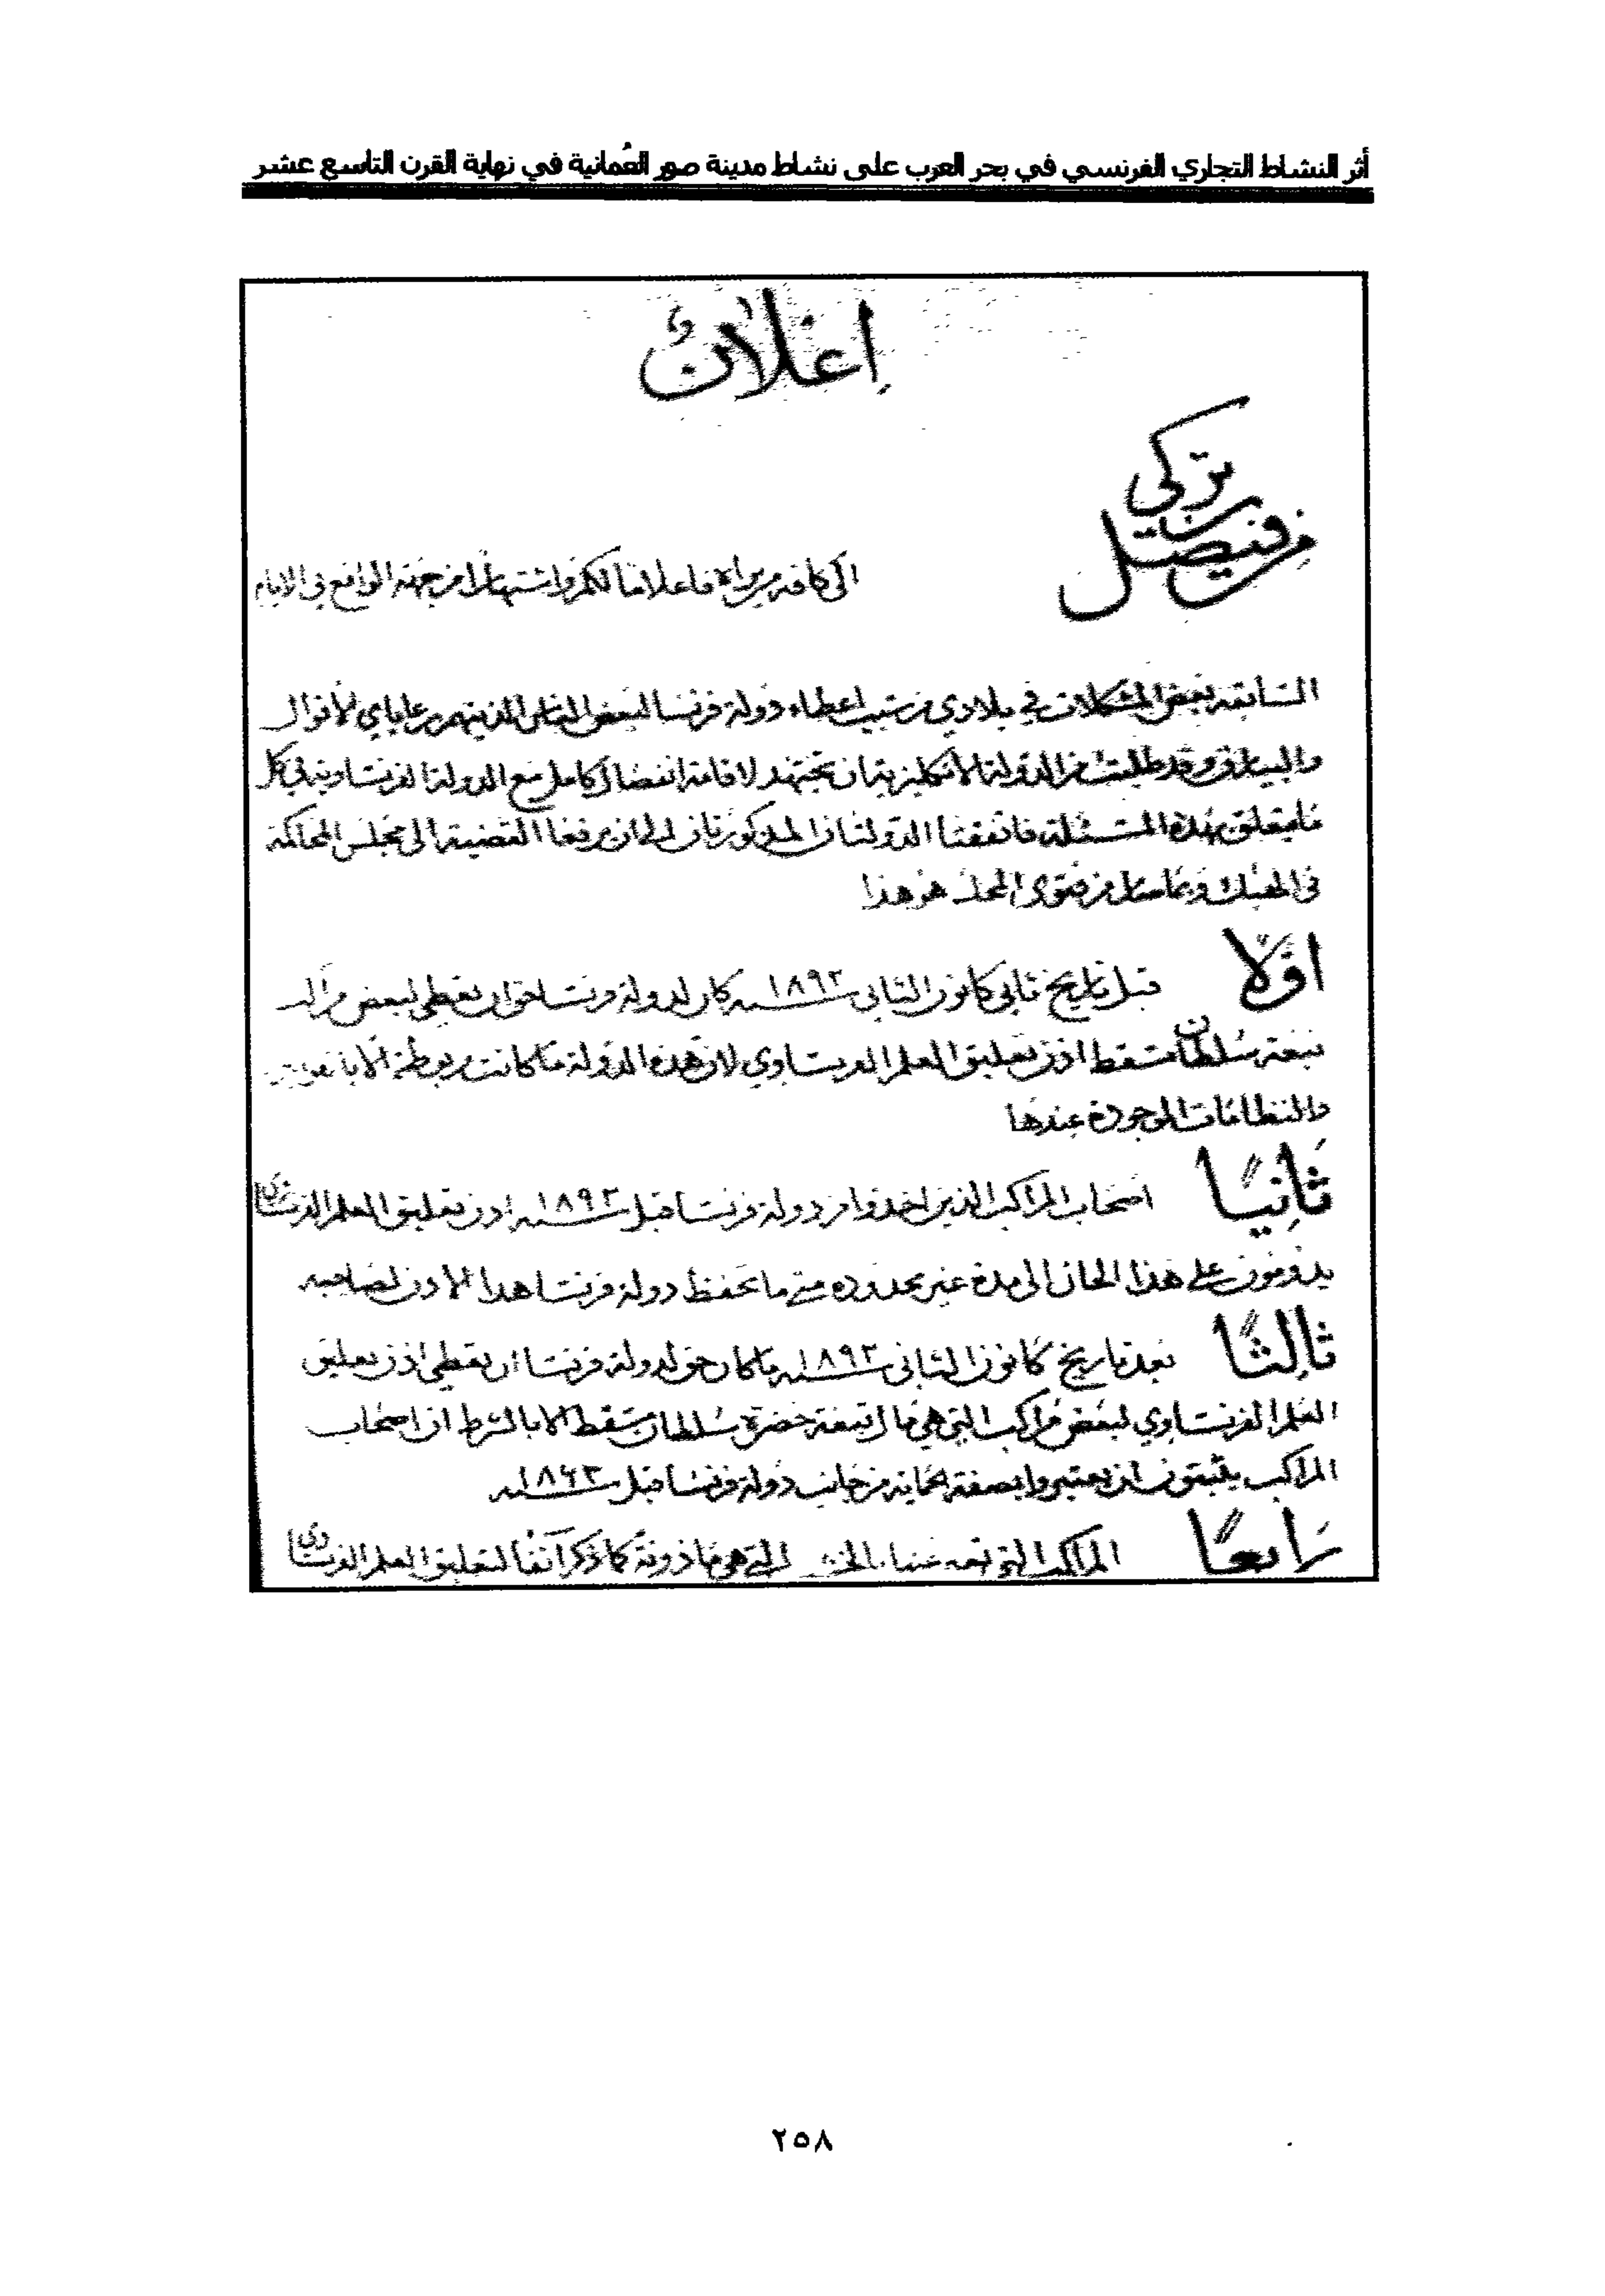 أثر النشاط التجاري الفرنسي في بحر العرب على نشاط مدينة صور العُمانية في نهاية القرن التاسع عشر
اعلانٌ
من فيصل بن تركي
الى كافة من يراه فاعلاماً لكم واشتهاراً من جهة الواقع في الايام
السابقة بعض المشكلات في بلادي من سبب اعطاء دولة فرنسا لبعض الناس الذينهم من رعاياي الاقوال
والبيارق وقد طلبت من الدولة الانكليزية ان تجتهد لاقامة انفصال كامل مع الدولة الفرنساوية في كل
ما يتعلق بهذه المسئلة فاتفقتا الدولتان المذكورتان ان يرفعا القضية الى مجلس المحاكمة
في من فتوى المجلس هو هذا
اوّلاً قبل تاريخ ثاني كانون الثاني سنه ١٨٩٢ كان لدولة فرنسا حق ان تعطي لبعض مراكب
تبعة سلطان مسقط اذن تعليق العلم الفرنساوي لان هذه الدولة ما كانت مربوطة الا
والنظامات الموجودة عندها
ثانياً اصحاب المراكب الذين اخذوا من دولة فرنسا قبل سنه ١٨٩٢ اذن تعليق العلم الفرنساوي
يدومون على هذا الحال الى مدة غير محدوده متى ما تحفظ دولة فرنسا هذا الاذن لصاحبه
ثالثاً بعد تاريخ كانون الثاني سنه ١٨٩٢ ما كان حق لدولة فرنسا ان تعطي اذن تعليق
العلم الفرنساوي لبعض مراكب التي هي مال تبعة حضرة سلطان مسقط الا بالشرط ان اصحاب
المراكب يثبتون ان يعتبروا بصفة الحماية من جانب دولة فرنسا قبل سنه ١٨٦٣
رابعاً المراكب التي هي ماذونة كما ذكر آنفاً لتعليق العلم الفرنساوي
٢٥٨